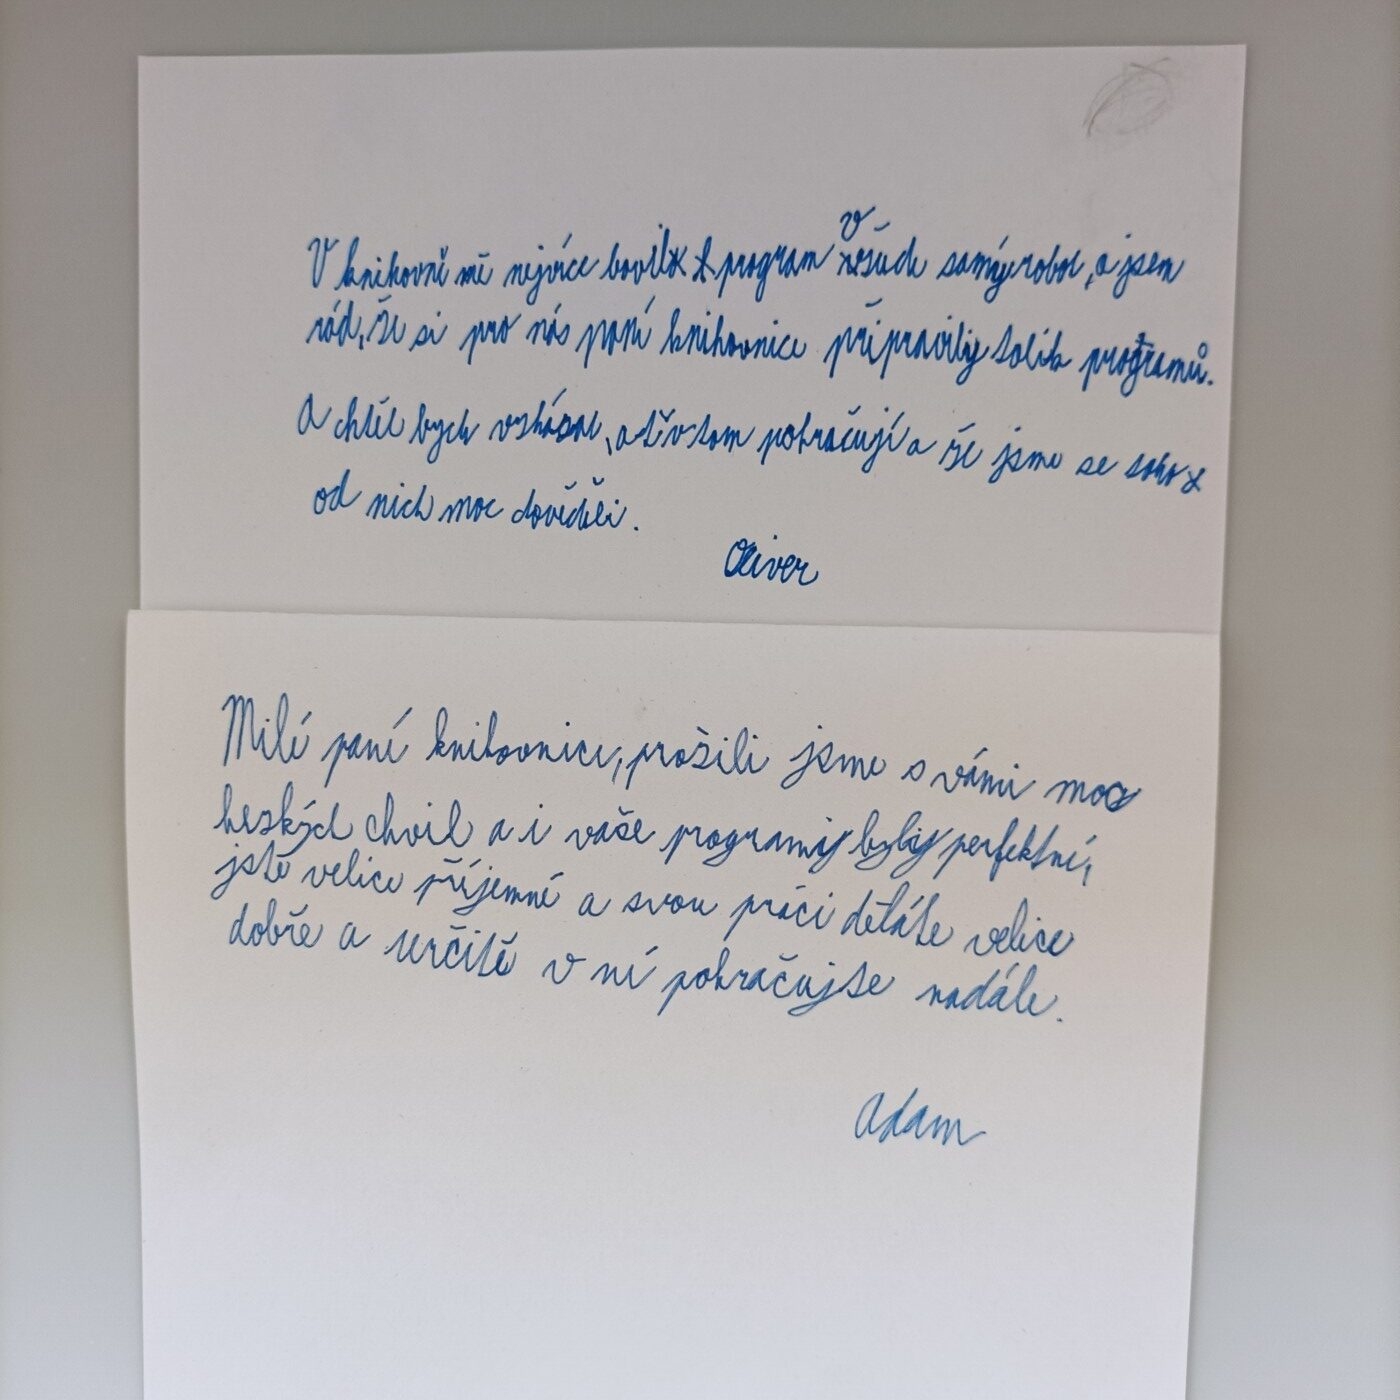 V knihovně mě nejvíce bavil program všude samý robot, a jsem
rád, že si pro nás paní knihovnice připravily tolik programů.
A chtěl bych vzkázat, ať v tom pokračují a že jsme se toho
od nich moc dověděli.
Oliver
Milé paní knihovnice, prožili jsme s vámi moc
hezkých chvil a i vaše programy byly perfektní,
jste velice příjemné a svou práci děláte velice
dobře a určitě v ní pokračujte nadále.
Adam